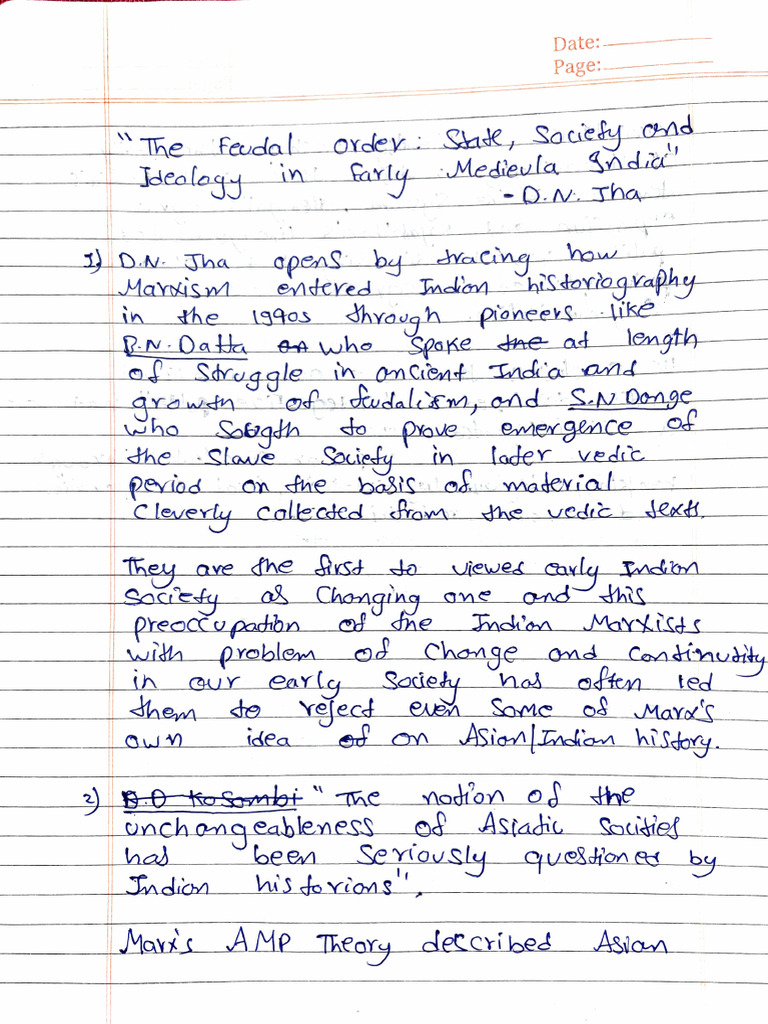 Date:
Page:
"The Feudal order: State, Society and
Ideology in Early Medievla India"
- D.N. Jha
1) D.N. Jha opens by tracing how
Marxism entered Indian historiography
in the 1990s through pioneers like
B.N. Datta who spoke at length
of Struggle in ancient India and
growth of feudalism, and S.N Dange
who Sougth to prove emergence of
the Slave Society in later vedic
period on the basis of material
Cleverly collected from the vedic texts.
They are the first to viewed early Indian
Society as Changing one and this
preoccupation of the Indian Marxists
with problem of Change and continutity
in our early Society has often led
them to reject even Some of Marx's
own idea on Asian/Indian history.
2) D.D Kosambi "The notion of the
unchangeableness of Asiatic Socities
has been Seriously questioned by
Indian historions".
Marx's AMP Theory described Asian